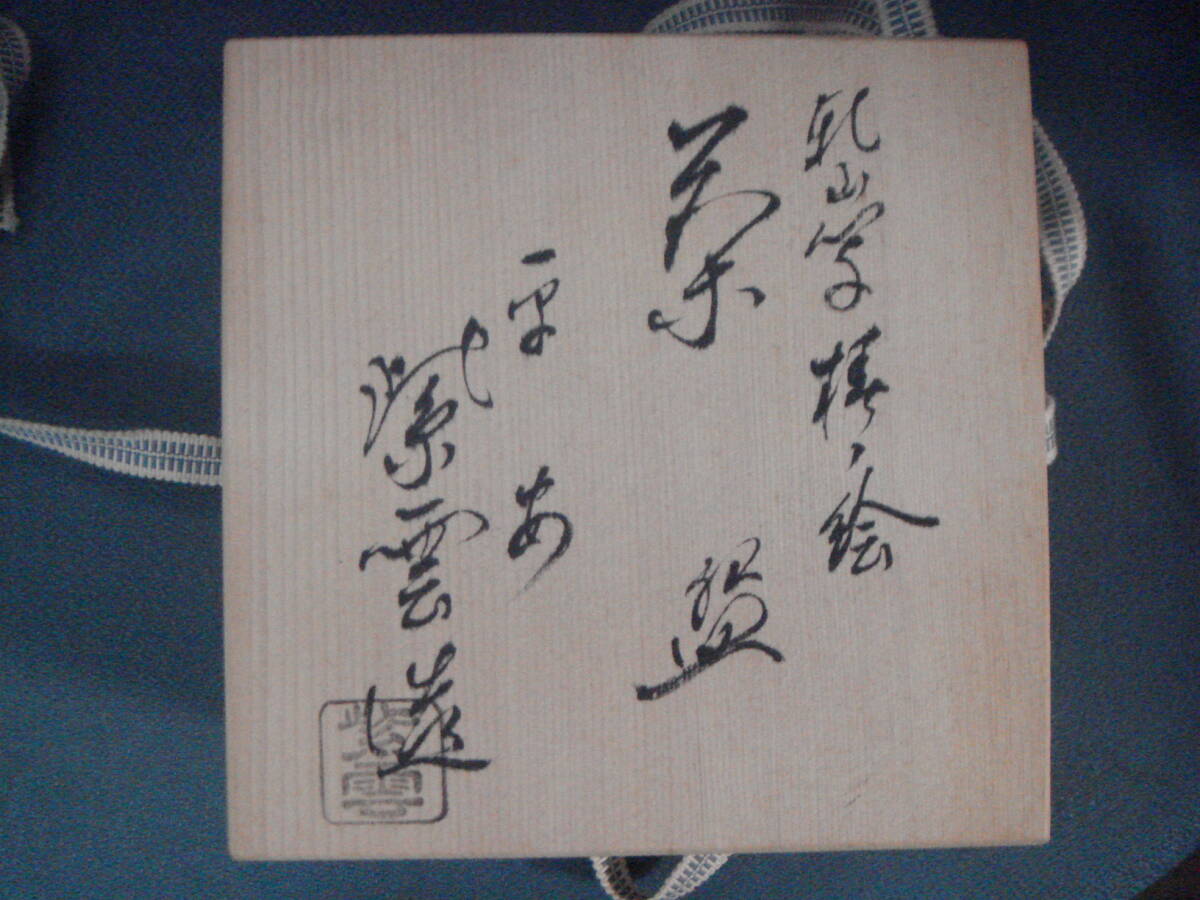 乾山写椿ノ絵
茶盌
平安
紫雲造
紫雲